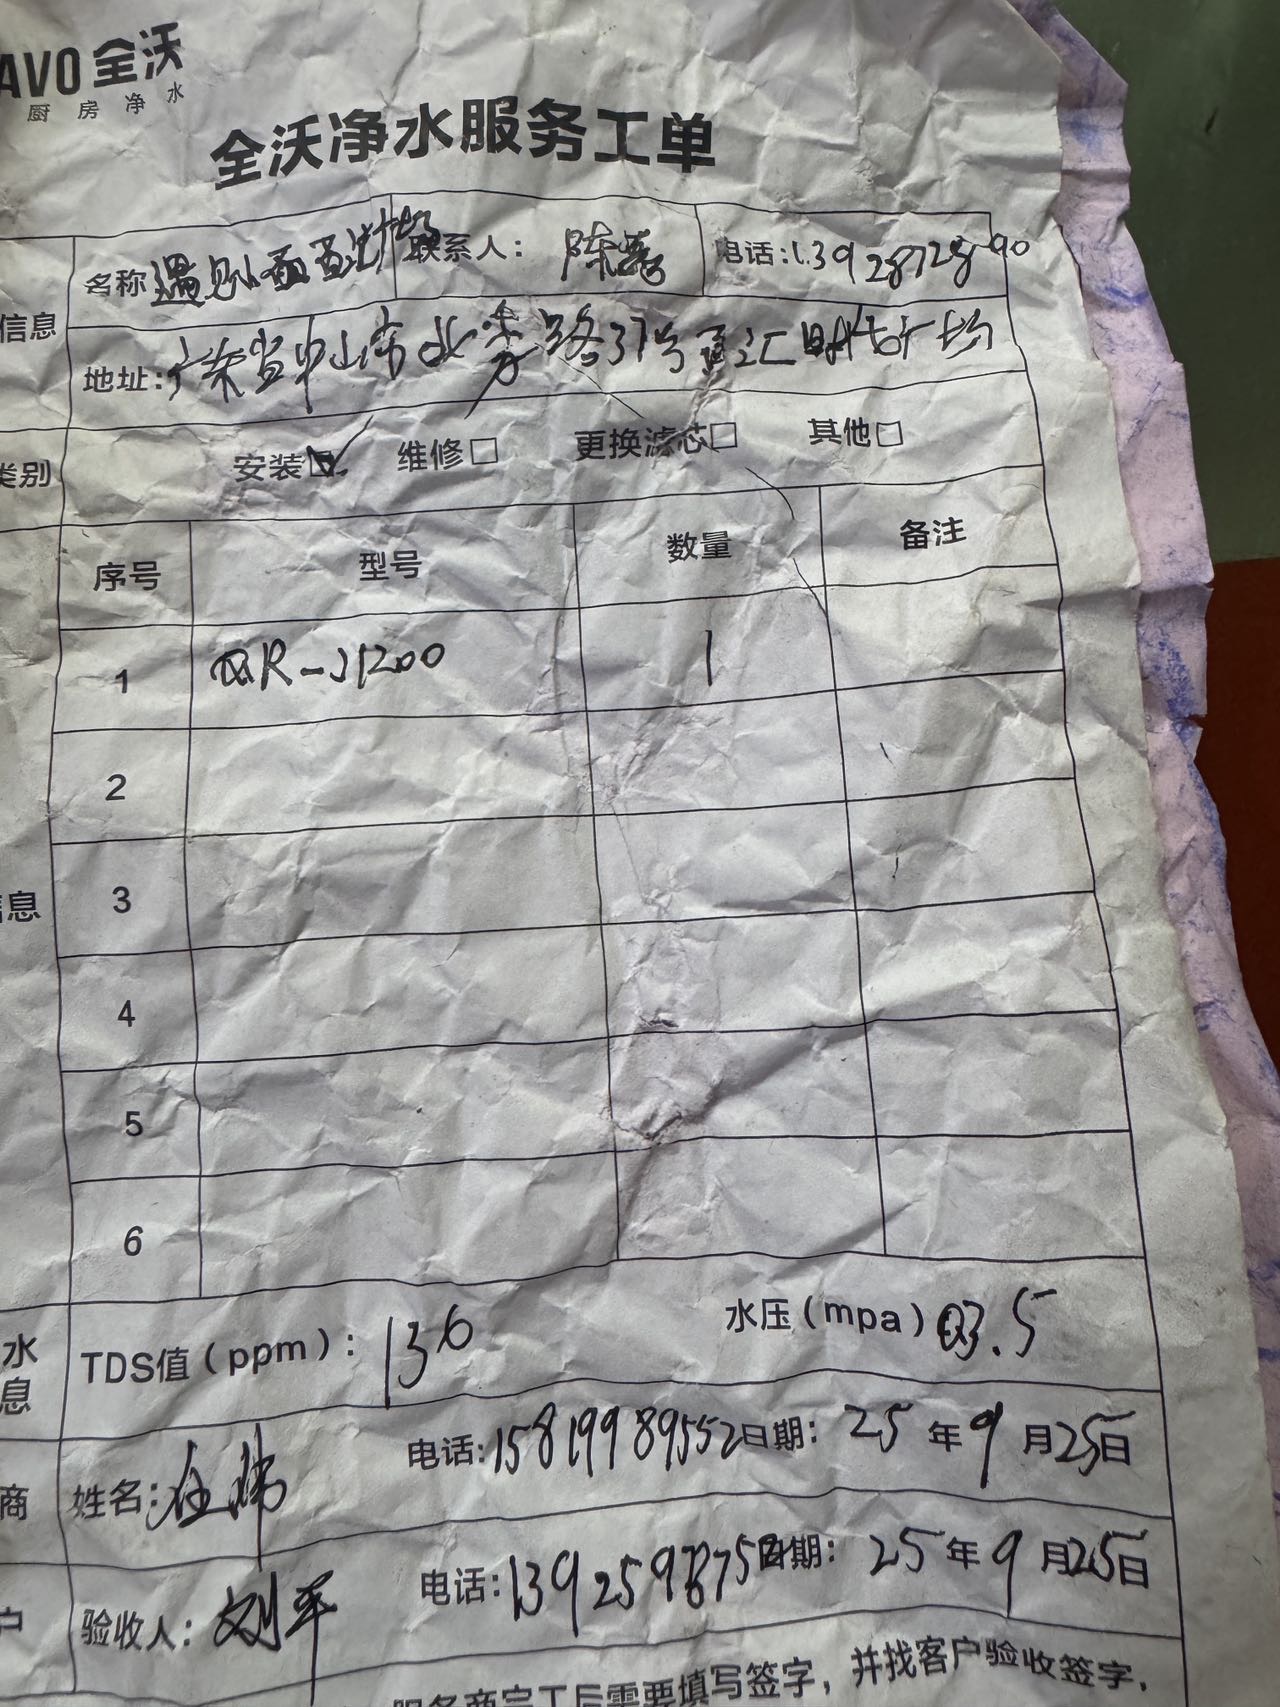 AVO 全沃
厨房净水
全沃净水服务工单
名称 遇见小面 联系人：陈 电话：13928728 90
信息
地址：广东省中山市 路37号 汇时代广场
类别 安装☑ 维修□ 更换滤芯□ 其他□
序号 型号 数量 备注
1 QR-J1200 1
2
3
息
4
5
6
水
息
TDS值（ppm）：136 水压（mpa）03.5
商 姓名： 电话：15819989552 日期：25年9月25日
户 验收人：刘军 电话：139259 875 日期：25年9月25日
服务商完工后需要填写签字，并找客户验收签字，